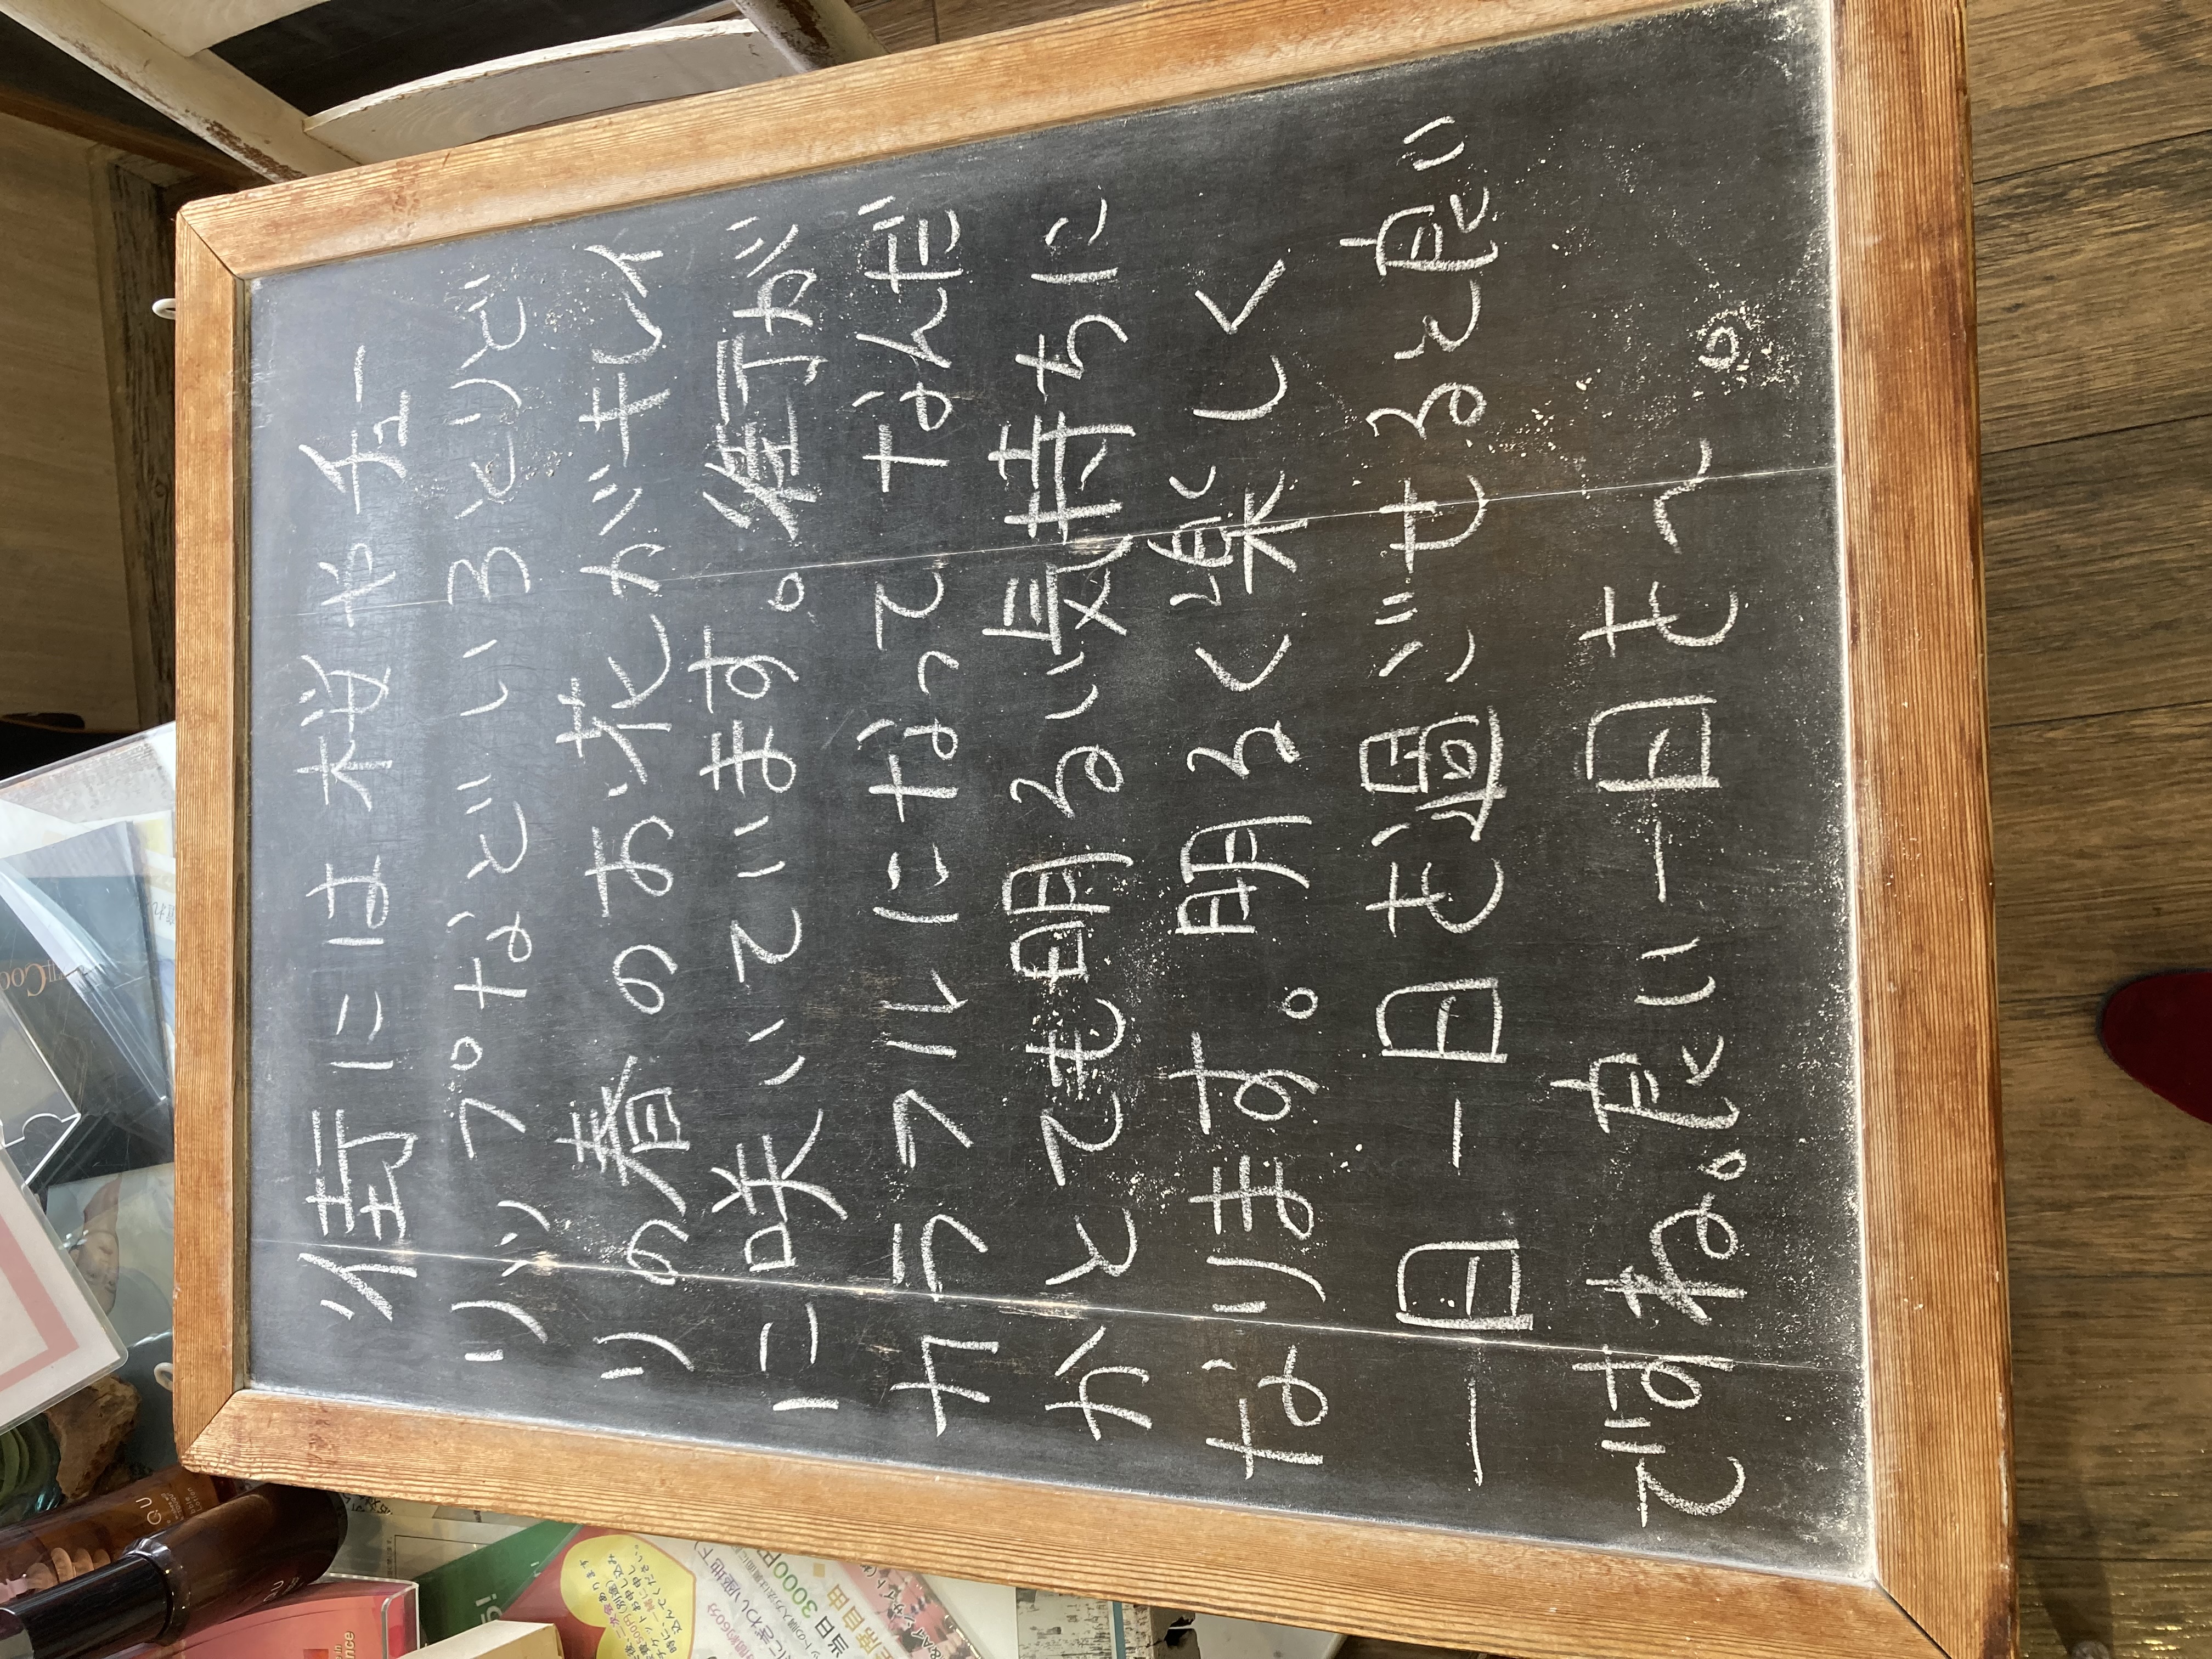 街には桜やチュー
リップなどいろとりどり
の春のお花がキレイ
に咲いています。街が
カラフルになってなんだ
かとても明るい気持ちに
なります。明るく楽しく
一日一日を過ごせると良い
ですね。良い一日を〜。
3000円
当日
席自由
QU